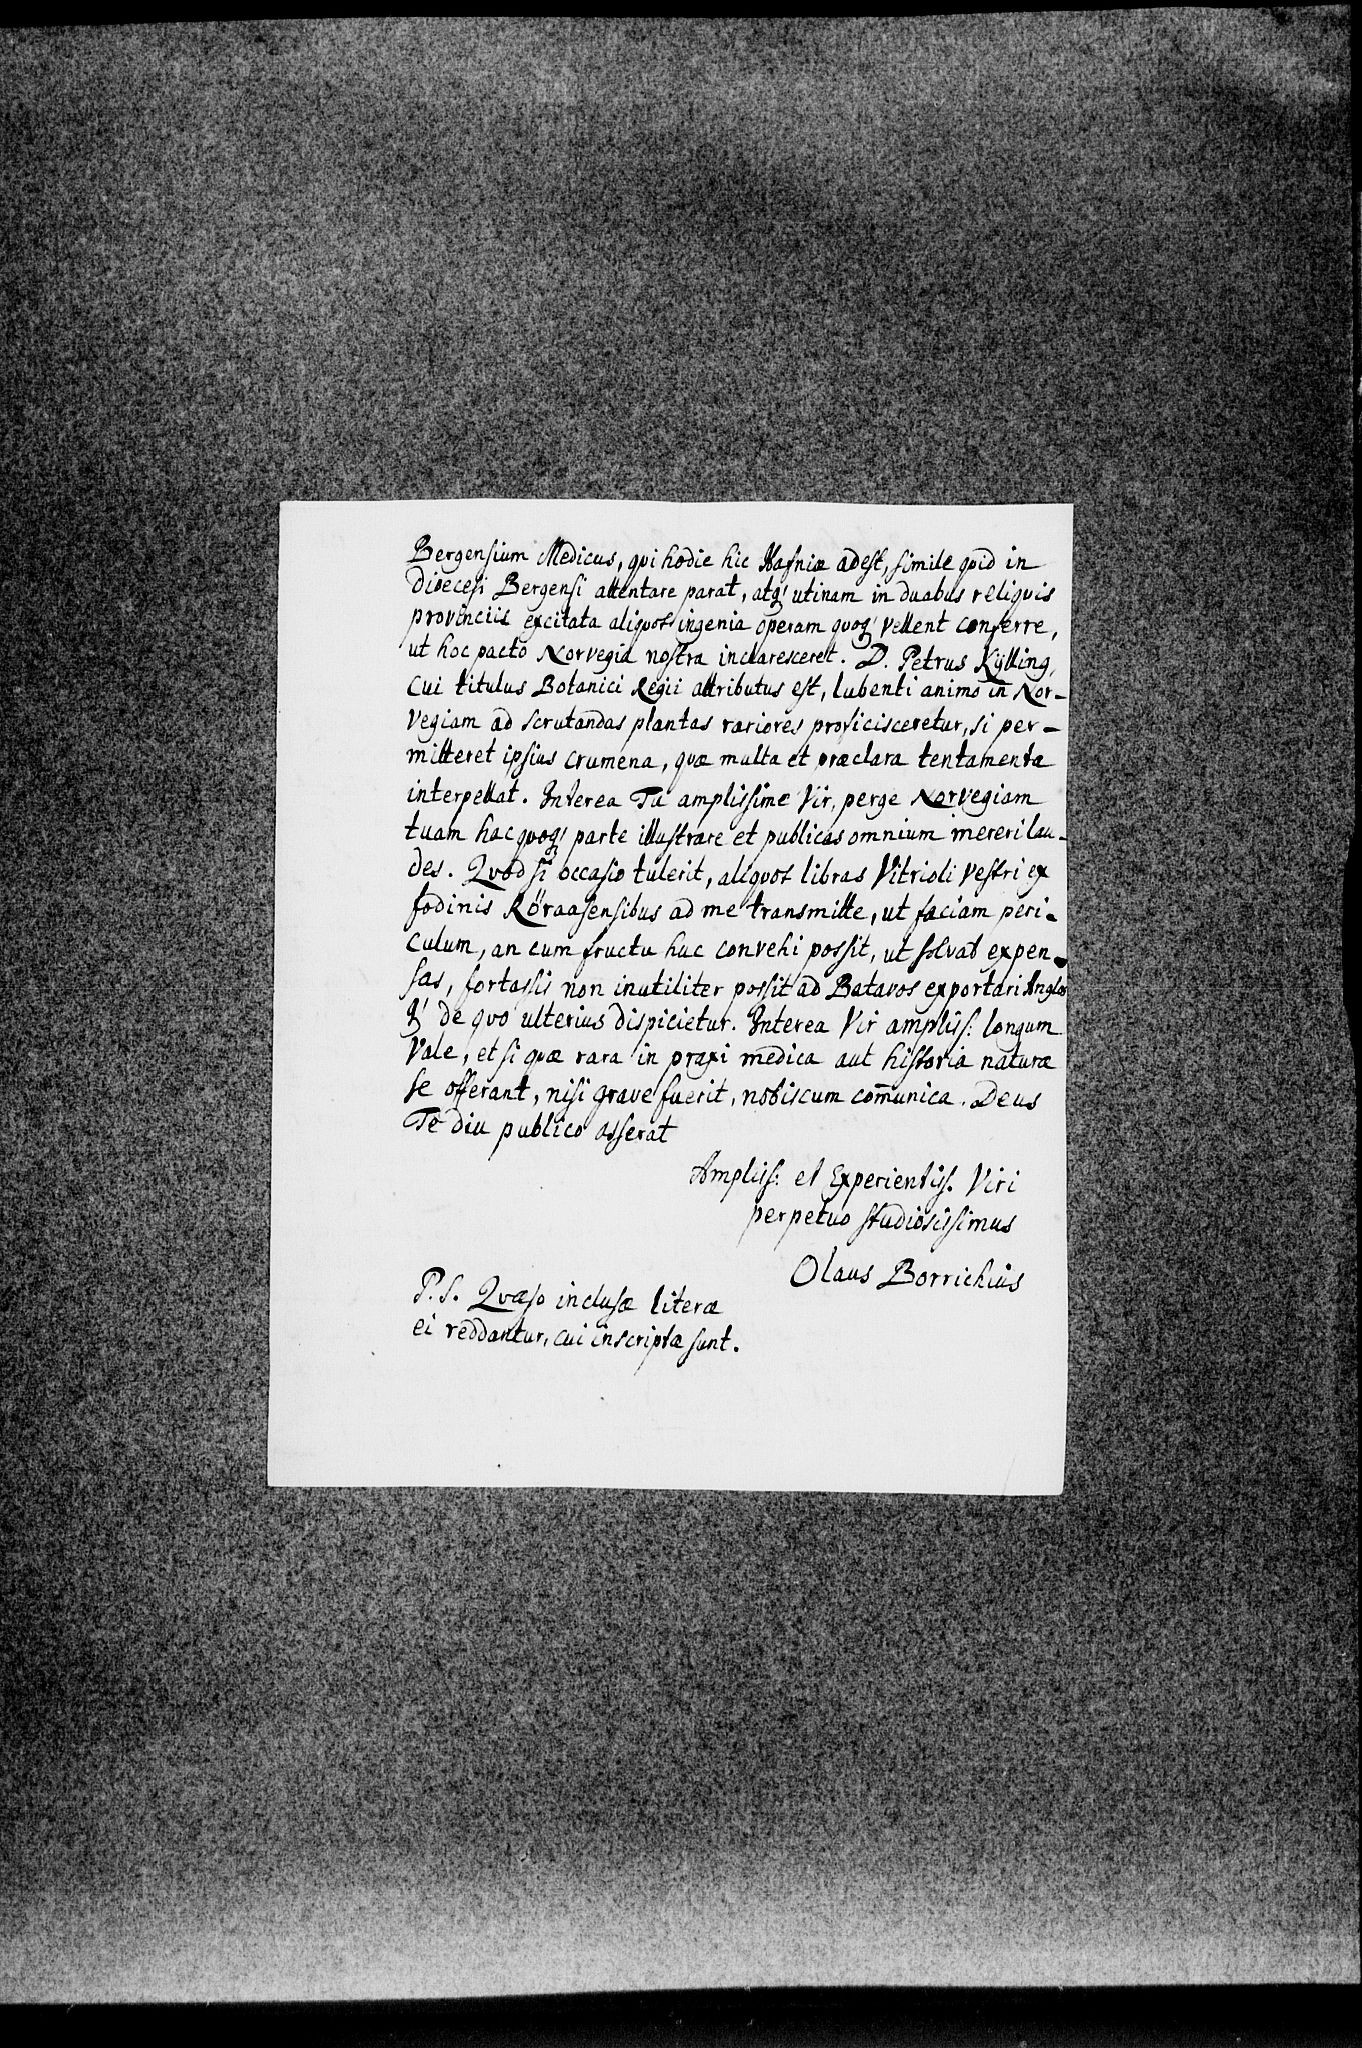 Bergensium Medicus, qvi hodie hic Hafniæ adest, simile qvid in
dioecesi Bergensi attentare parat, atq; utinam in duabus reliqvis
provinciis excitata aliqvot ingenia operam qvoq; vellent conferre,
ut hoc pacto Norvegia nostra inclaresceret. D. Petrus Kÿlling,
cui titulus Botanici Regii attributus est, lubenti animo in Nor-
vegiam ad scrutandas plantas rariores proficisceretur, si per-
mitteret ipsius crumena, qvæ multa et præclara tentamenta
interpellat. Interea Tu amplissime Vir, perge Norvegiam
tuam hac qvoq; parte illustrare et publicas omnium mereri lau-
des. Qvod si occasio tulerit, aliqvot libras Vitrioli vestri ex
fodinis Röraasensibus ad me transmitte, ut faciam peri-
culum, an cum fructu huc convehi possit, ut solvat expen-
sas, fortassis non inutiliter possit ad Batavos exportari Anglos
q; de qvo ulterius dispicietur. Interea Vir ampliss: longum
Vale, et si qvæ rara in praxi medica aut historia naturæ
se offerant, nisi grave fuerit, nobiscum com̄unica. Deus
Te diu publico asserat
Ampliss: et Experientiss. Viri
perpetuo studiosissimus
Olaus Borrichius
P.S. Qvæso inclusæ literæ
ei reddantur, cui inscriptæ sunt.